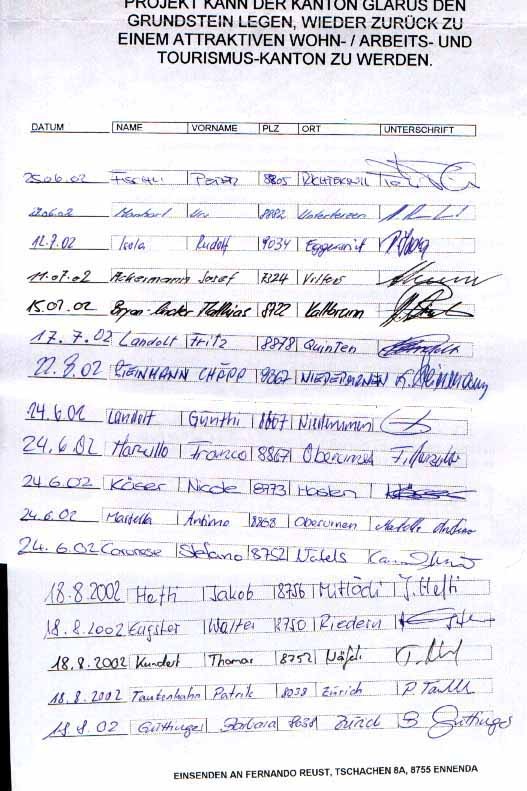 PROJEKT KANN DER KANTON GLARUS DEN
GRUNDSTEIN LEGEN, WIEDER ZURÜCK ZU
EINEM ATTRAKTIVEN WOHN- / ARBEITS- UND
TOURISMUS-KANTON ZU WERDEN.
DATUM NAME VORNAME PLZ ORT UNTERSCHRIFT
25.06.02 Peter 8805 RICHTERSWIL
8882 Unterterzen
12.7.02 Isola Rudolf 9034 Eggersriet
11.07.02 Ackermann Josef 7324 Vilters
15.07.02 Mathias 8722 Kaltbrunn
17.7.02 Landolt Fritz 8878 Quinten
22.8.02 STEINMANN CHÄPP 8867 NIEDERURNEN
24.6.02 Landolt Günthi 8867 Niederurnen
24.6.02 Marzullo Franco 8867 Oberurnen F. Marzullo
24.6.02 Käser Nicole 8773 Haslen
24.6.02 Martella Antimo 8868 Oberurnen
24.6.02 Stefano 8752 Näfels
18.8.2002 Hefti Jakob 8756 Mitlödi J. Hefti
18.8.2002 Eugster Walter 8750 Riedern
18.8.2002 Kundert Thomas 8752 Näfels
18.8.2002 Tautenhahn Patrik 8038 Zürich
18.8.02 Güttinger Barbara 8038 Zürich B. Güttinger
EINSENDEN AN FERNANDO REUST, TSCHACHEN 8A, 8755 ENNENDA